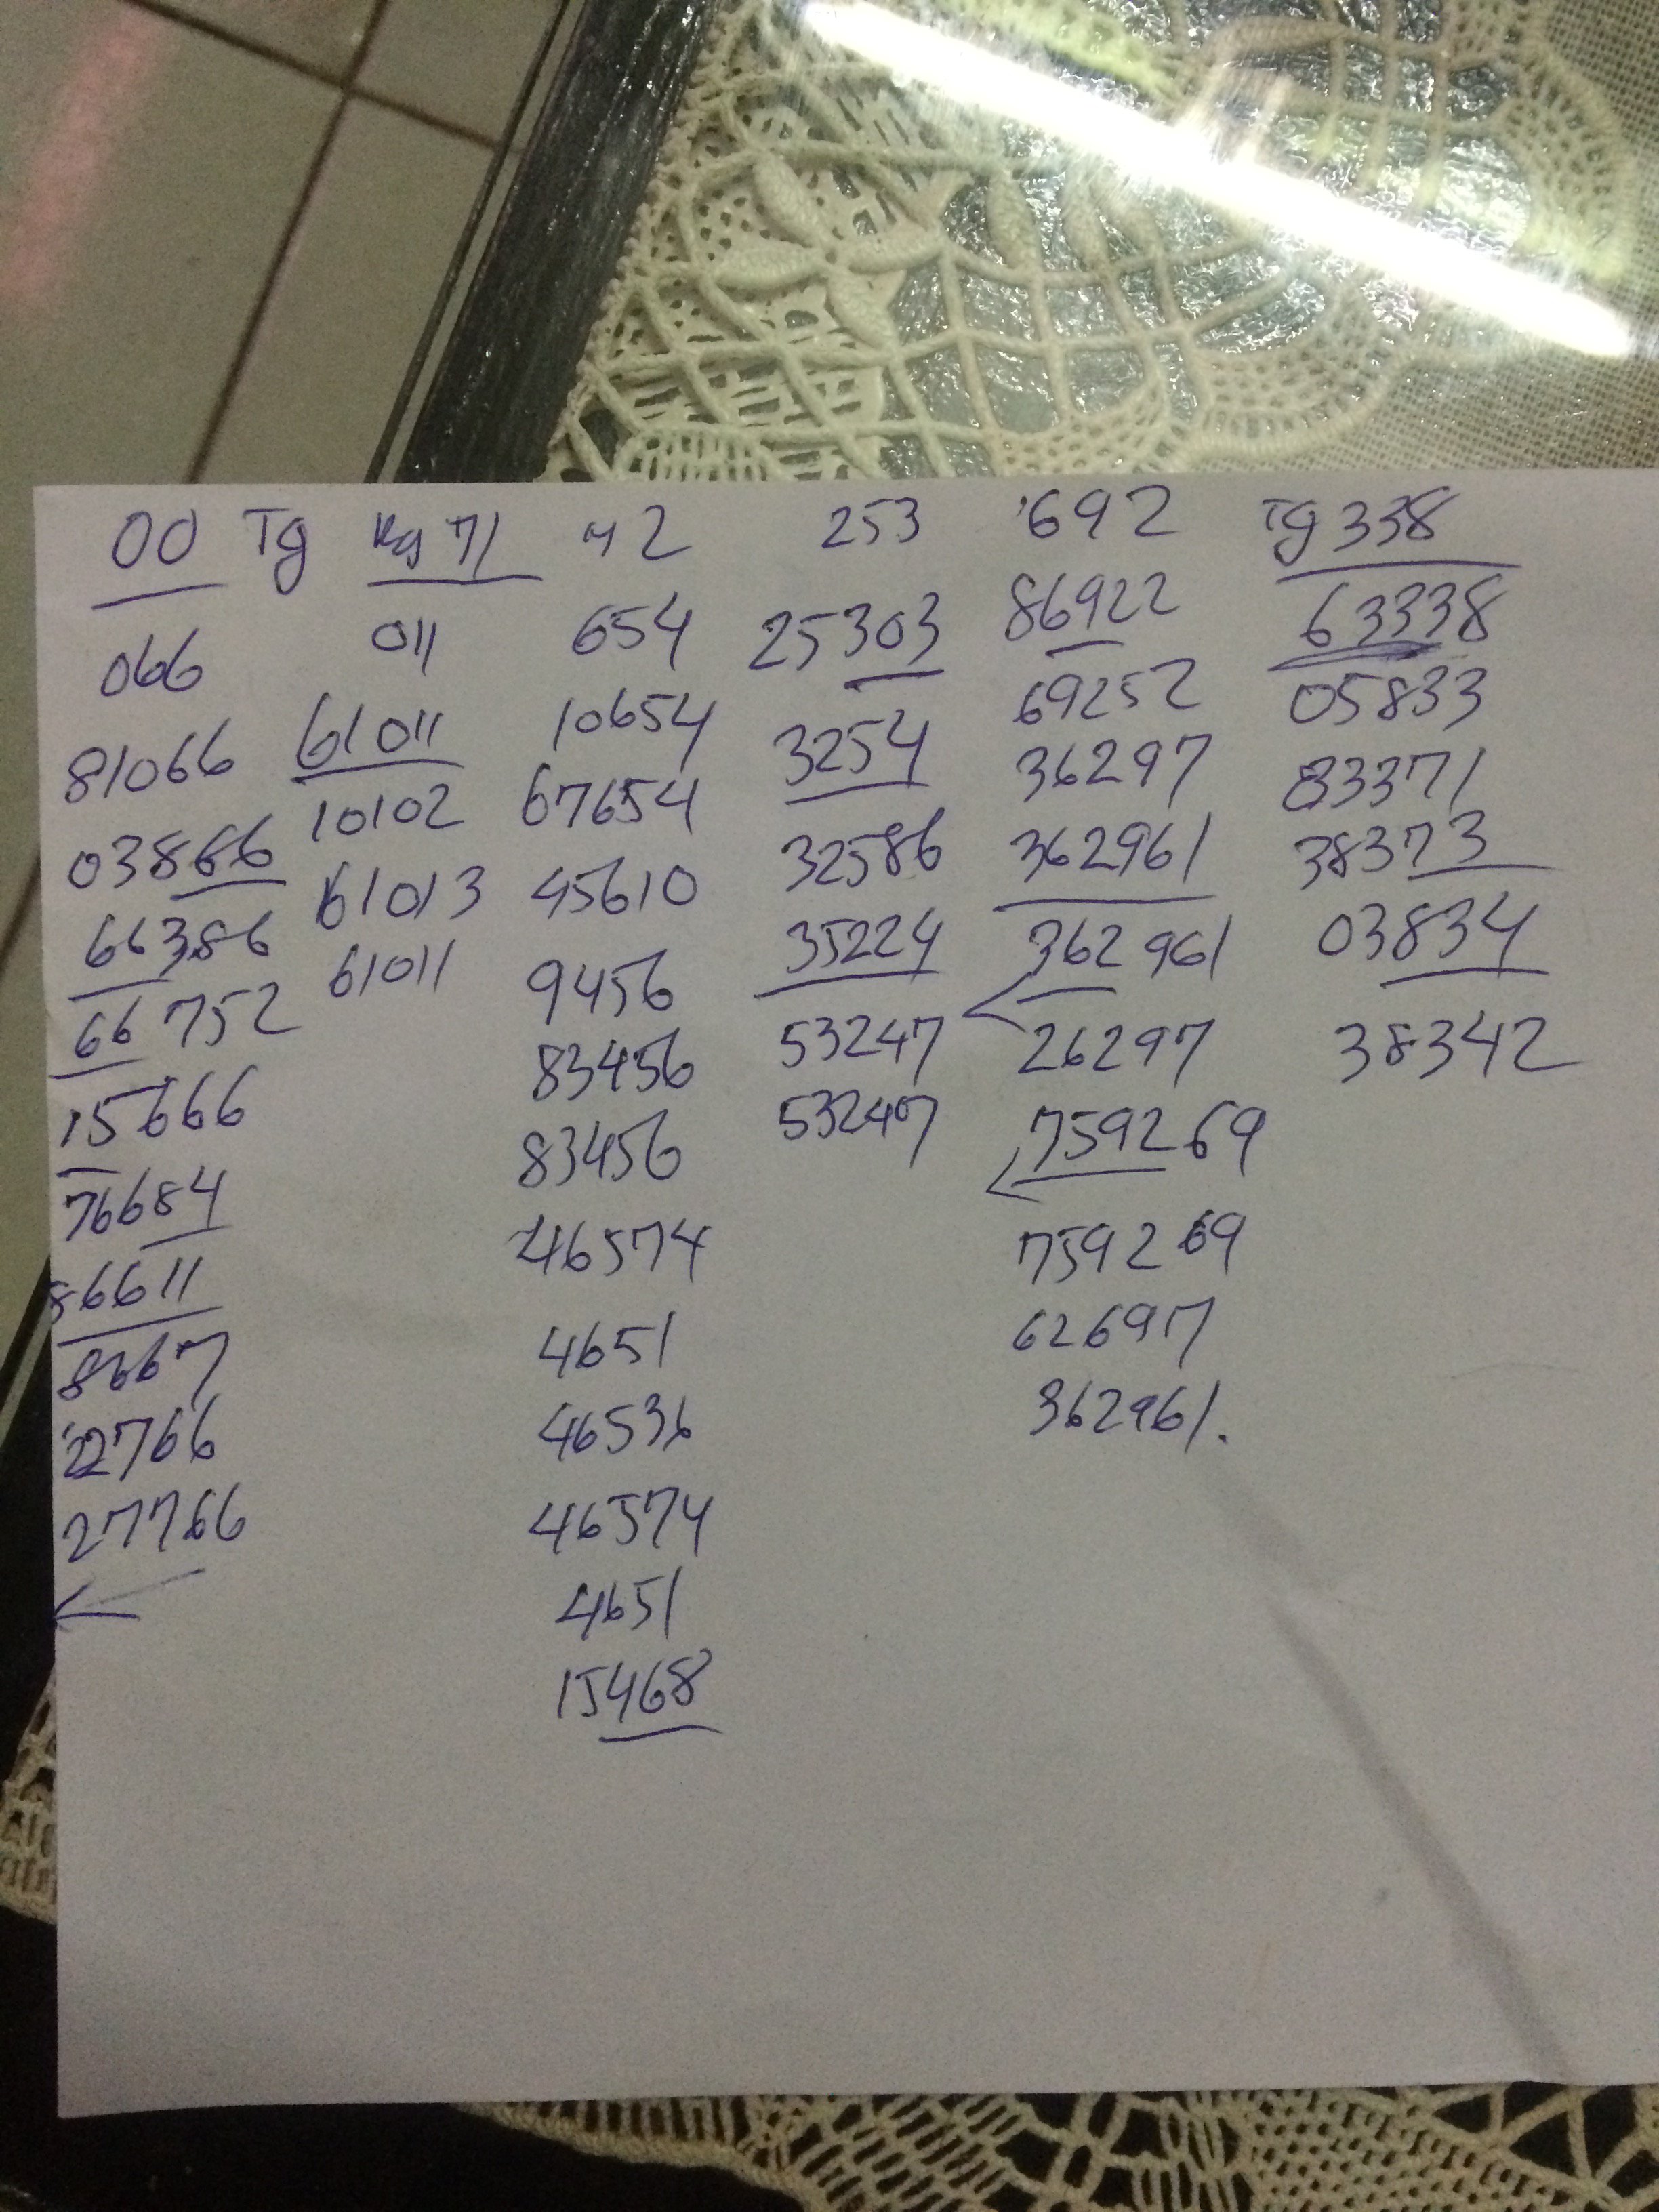 00 Tg
066
81066
03866
66386
66752
15666
76684
86611
8667
22766
27766
71
011
61011
10102
61013
61011
42
654
10654
67654
45610
9456
83456
83456
46574
4651
46536
46574
4651
15468
253
25303
3254
32586
35224
53247
53247
692
86922
69252
36297
362961
362961
26297
759269
759269
62697
362961.
Tg 338
63338
05833
83371
38373
03834
38342